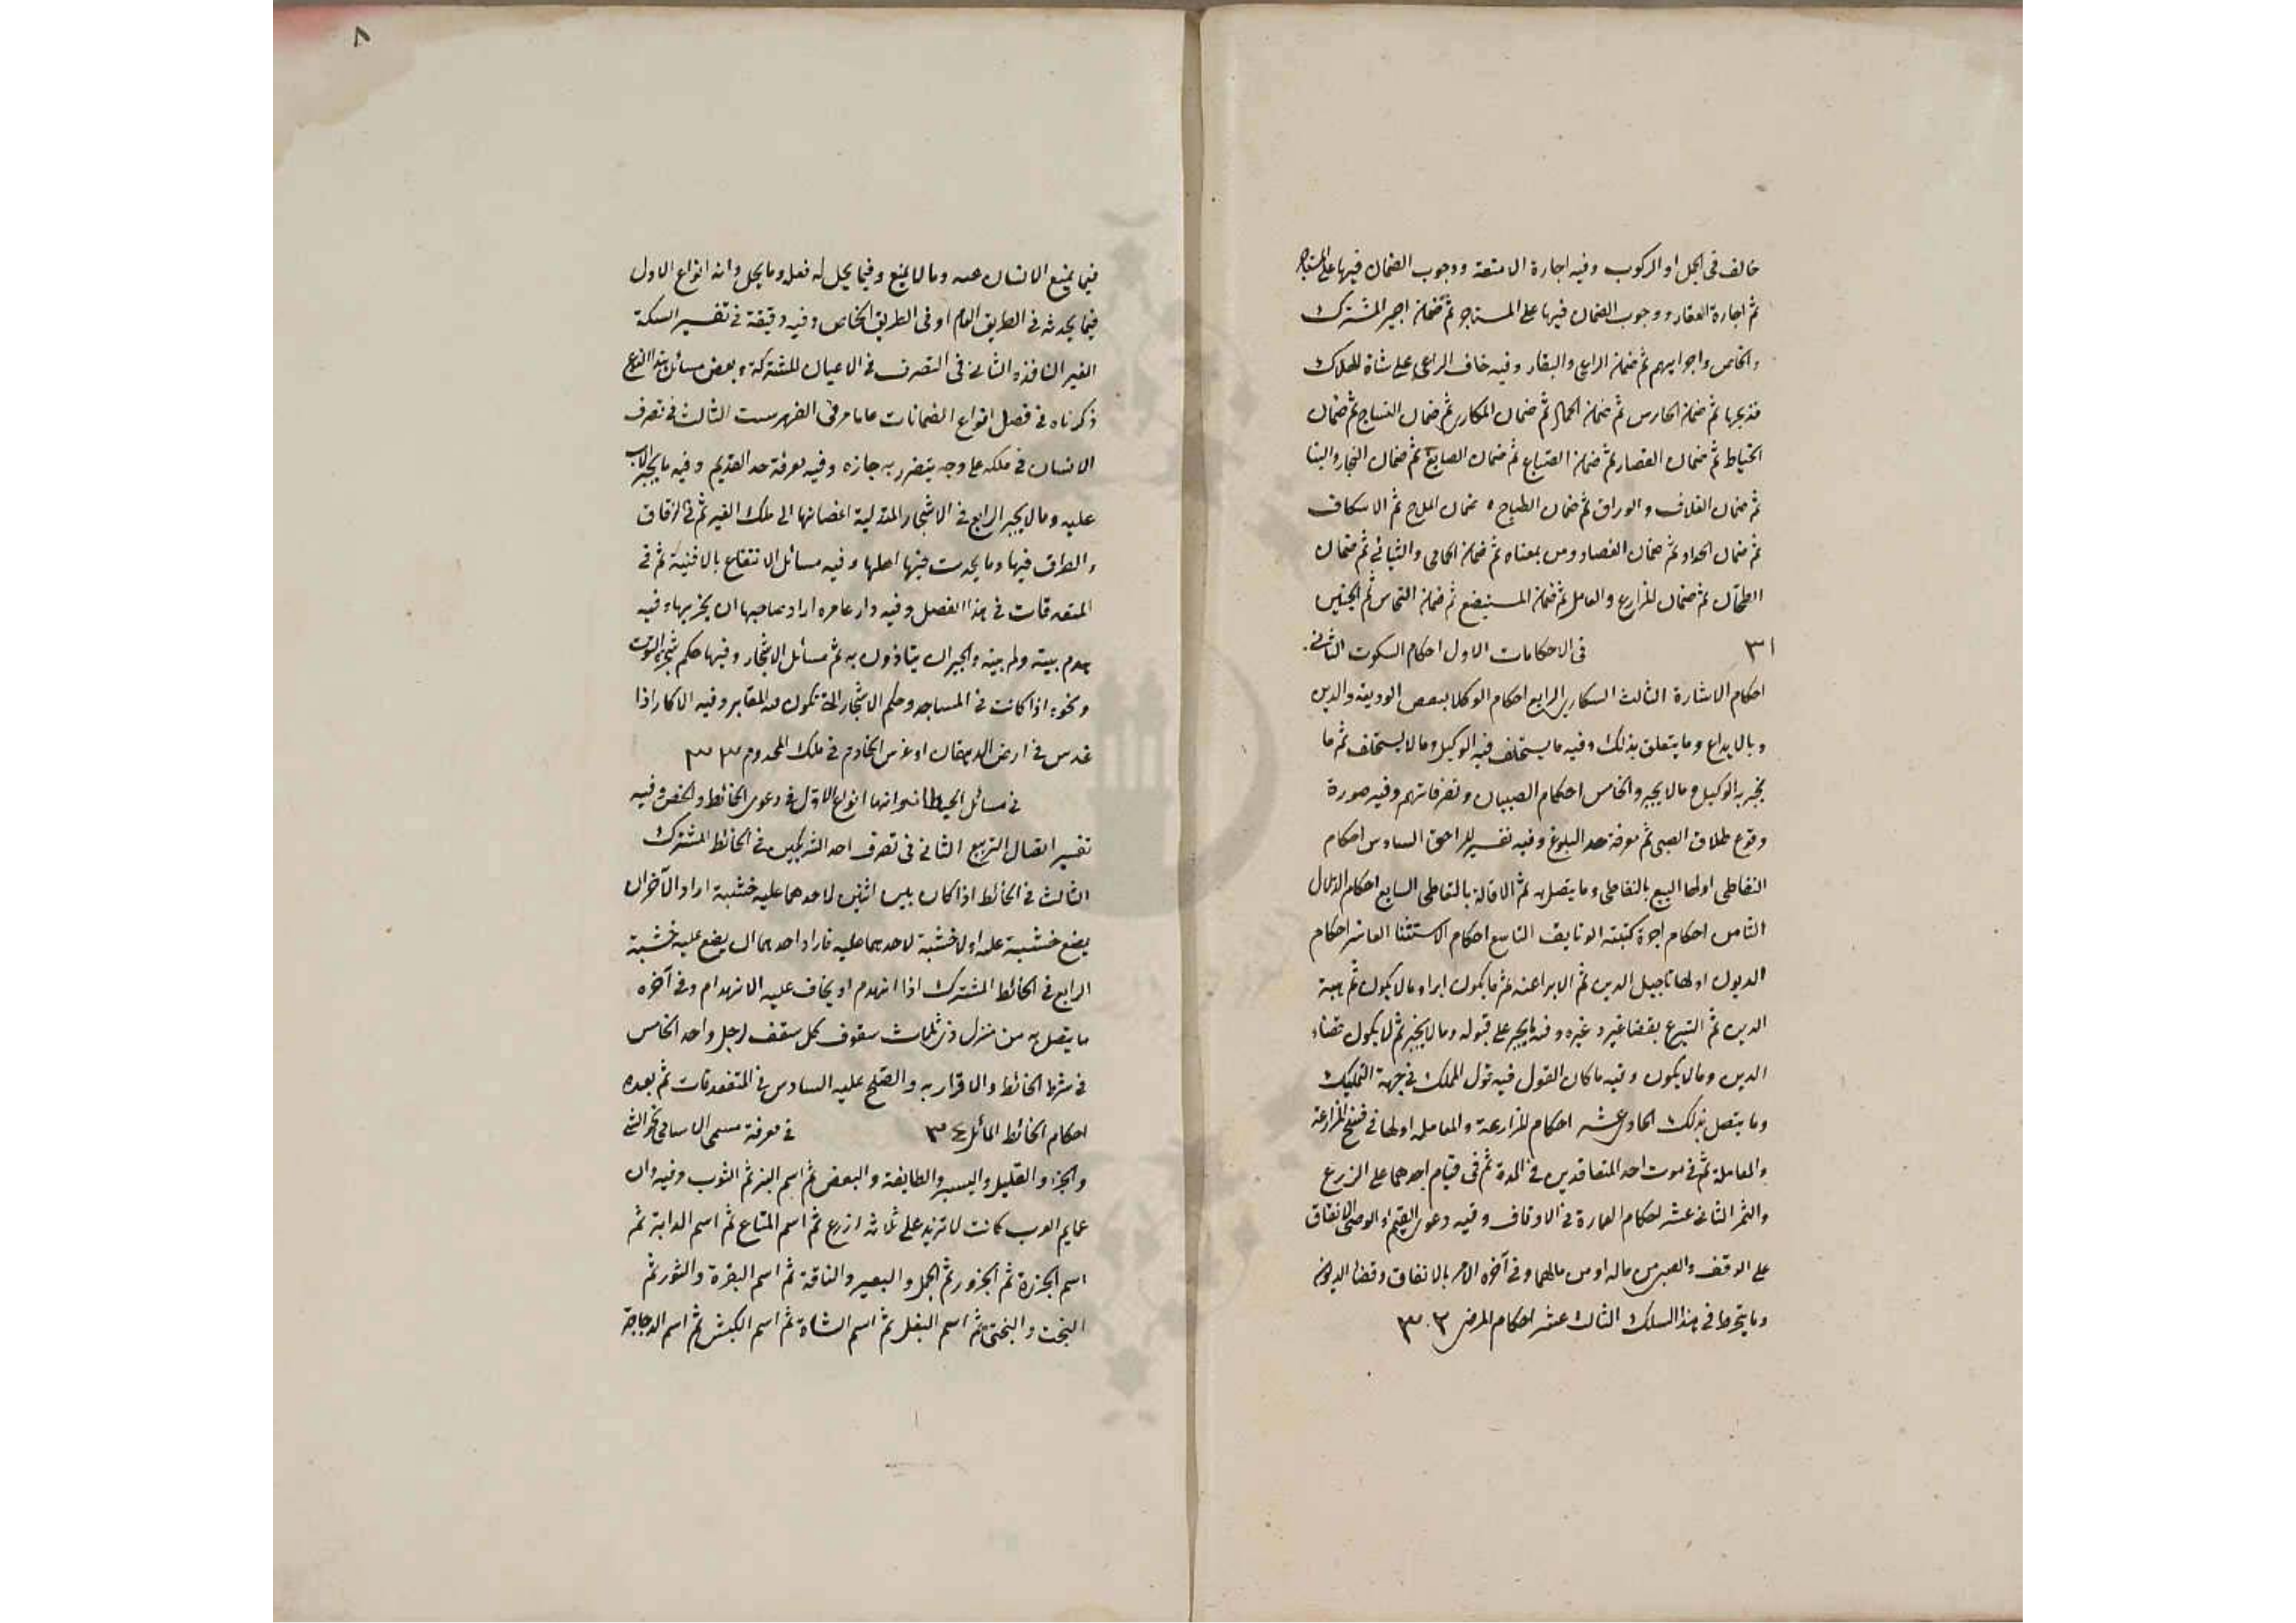 خالف فى الحمل او الركوب وفيه اجارة الامتعة ووجوب الضمان فيها على المستاجر
ثم اجارة العقار ووجوب الضمان فيها على المستاجر ثم ضمان اجير المشترك
والخاص واجرايهم ثم ضمان الراعى والبقار وفيه خاف الراعى على شاة للهلاك
فذبحها ثم ضمان الحارس ثم ضمان الحمال ثم ضمان المكارى ثم ضمان النساج ثم ضمان
الخياط ثم ضمان القصار ثم ضمان الصباغ ثم ضمان الصايغ ثم ضمان النجار والبنا
ثم ضمان الغلاف والوراق ثم ضمان الطباخ ضمان الملاح ثم الاسكاف
ثم ضمان الحداد ثم ضمان الفصاد ومن بمعناه ثم ضمان الحامى والثيابى ثم ضمان
الطحان ثم ضمان المزارع والعامل ثم ضمان المستبضع ثم ضمان النخاس ثم الجنين
٣١ فى الاحكامات الاول احكام السكوت الثانى
احكام الاشارة الثالث السكارى الرابع احكام الوكلا بقبض الوديعة والدين
وبالايداع وما يتعلق بذلك وفيه ما يستحلف فيه الوكيل وما لا يستحلف ثم ما
يجبر به الوكيل وما لا يجبر والخامس احكام الصبيان وتصرفاتهم وفيه صورة
وقوع طلاق الصبى ثم معرفة حد البلوغ وفيه تفسير المراهق السادس احكام
التعاطى اولها البيع بالتعاطى وما يتصل به ثم الاقالة بالتعاطى السابع احكام الدلال
الثامن احكام اجرة كتبته الوثايق التاسع احكام الاستثنا العاشر احكام
الديون اولها تاجيل الدين ثم الابرا عنه ثم ما يكون ابراء وما لا يكون ثم هبة
الدين ثم التبرع بقضا غيره وغيره وفيه ما يجبر على قبوله وما لا يجبر ثم ما يكون قضاء
الدين وما لا يكون وفيه ما كان القول فيه قول المملك فى جهة التمليك
وما يتصل بذلك الحادى عشر احكام المزارعة والمعاملة اولها فى فسخ المزارعة
والمعاملة ثم فى موت احد المتعاقدين فى المدة ثم فى قيام احدهما على الزرع
والثمر الثانى عشر احكام العمارة فى الاوقاف وفيه دعوى القيم او الوصى الانفاق
على الوقف والصبى من ماله او من مالهما وفى آخره الامر بالانفاق وقضا الديون
وما ينخرط فى هذا السلك الثالث عشر احكام المرضى ٣٢
٨
فيما يمنع الانسان عنه وما لا يمنع وفيما يحل له فعله وما يحل وانه انواع الاول
فيما يحدثه فى الطريق العام او فى الطريق الخاص وفيه دقيقة فى تفسير السكة
الغير النافذه الثانى فى التصرف فى الاعيان المشتركة وبعض مسائل هذا النوع
ذكرناه فى فصل انواع الضمانات على ما مر فى الفهرست الثالث فى تصرف
الانسان فى ملكه على وجه يتضرر به جازه وفيه معرفة حد القديم وفيه ما يجبر الاب
عليه وما لا يجبر الرابع فى الاشجار المتدلية اغصانها الى ملك الغير ثم فى الزقاق
والطرق فيها وما يحدث فيها اهلها وفيه مسائل الانتفاع بالافنية ثم فى
المتفرقات فى هذا الفصل وفيه دار عامره اراد صاحبها ان يخربها وفيه
هدم بيته ولم يبنه والجيران يتاذون به ثم مسائل الاشجار وفيها حكم شجرة التوت
ونحوه اذا كانت فى المساجد وحكم الاشجار التى تكون فى المقابر وفيه الاكار اذا
غرس فى ارض الدهقان او غرس الخادم فى ملك المخدوم ٣٣
فى مسائل الحيطان وانها انواع الاول فى دعوى الحائط والخص وفيه
تفسير اتصال التربيع الثانى فى تصرف احد الشريكين فى الحائط المشترك
الثالث فى الحائط اذا كان بين اثنين لاحدهما عليه خشبة اراد الآخر ان
يضع خشبة عليه او لا خشبة لاحدهما عليه فاراد احدهما ان يضع عليه خشبة
الرابع فى الحائط المشترك اذا انهدم او يخاف عليه الانهدام وفى آخره
ما يتصل به من منزل ذى ثلاث سقوف كل سقف لرجل واحد الخامس
فى شرط الحائط والاقرار به والصلح عليه السادس فى المتفرقات ثم بعده
احكام الحائط المائل ٣٤ فى معرفة مسمى الاسامى نحو الشئ
والجزء والقليل واليسير والطايفة والبعض ثم اسم البز ثم الثوب وفيه وان
عمايم العرب كانت لا تزيد على ثلاثة اذرع ثم اسم المتاع ثم اسم الدابة ثم
اسم الجزرة ثم الجزور ثم الجمل والبعير والناقة ثم اسم البقرة والثور ثم
البخت والبختى ثم اسم البغل ثم اسم الشاة ثم اسم الكبش ثم اسم الدجاجة